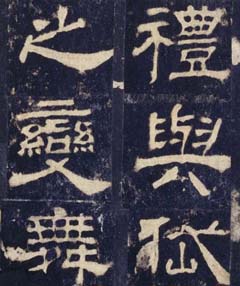 禮與岱
之變舞